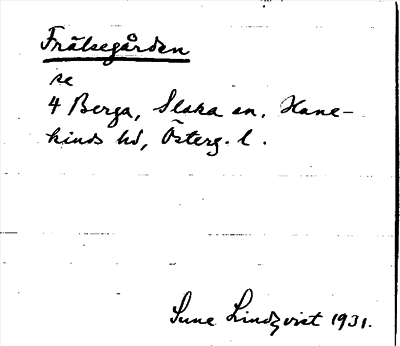 Frälsegården
se
4 Berga, Slaka sn. Hane-
kinds hd, Österg. l.
Sune Lindqvist 1931.